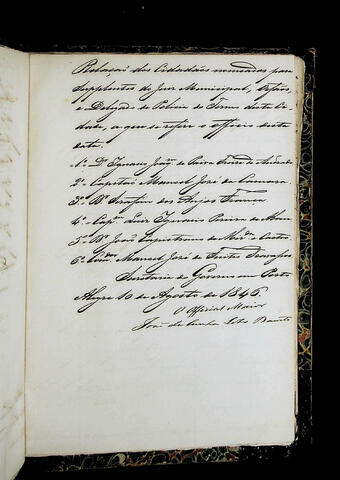 Relação dos Cidadãos nomeados para
Supplentes do Juiz Municipal, Orfãos,
e Delegado de Policia do Termo desta Ci-
dade, a que se refere o officio desta
data.
1º Dr Ignacio Joaqm de Paiva Freire de Andrade
2º Capitão Manoel José da Camara.
3º Bel Serafim dos Anjos França
4º Capm Luiz Ignacio Pereira de
5º Bel João Capistrano de Mirda e Castro.
6º Manoel José de Freitas Travassos
Secretaria do Governo em Porto
Alegre 10 de Agosto de 1846.
O Official Maior
João da Cunha Lobo Barreto